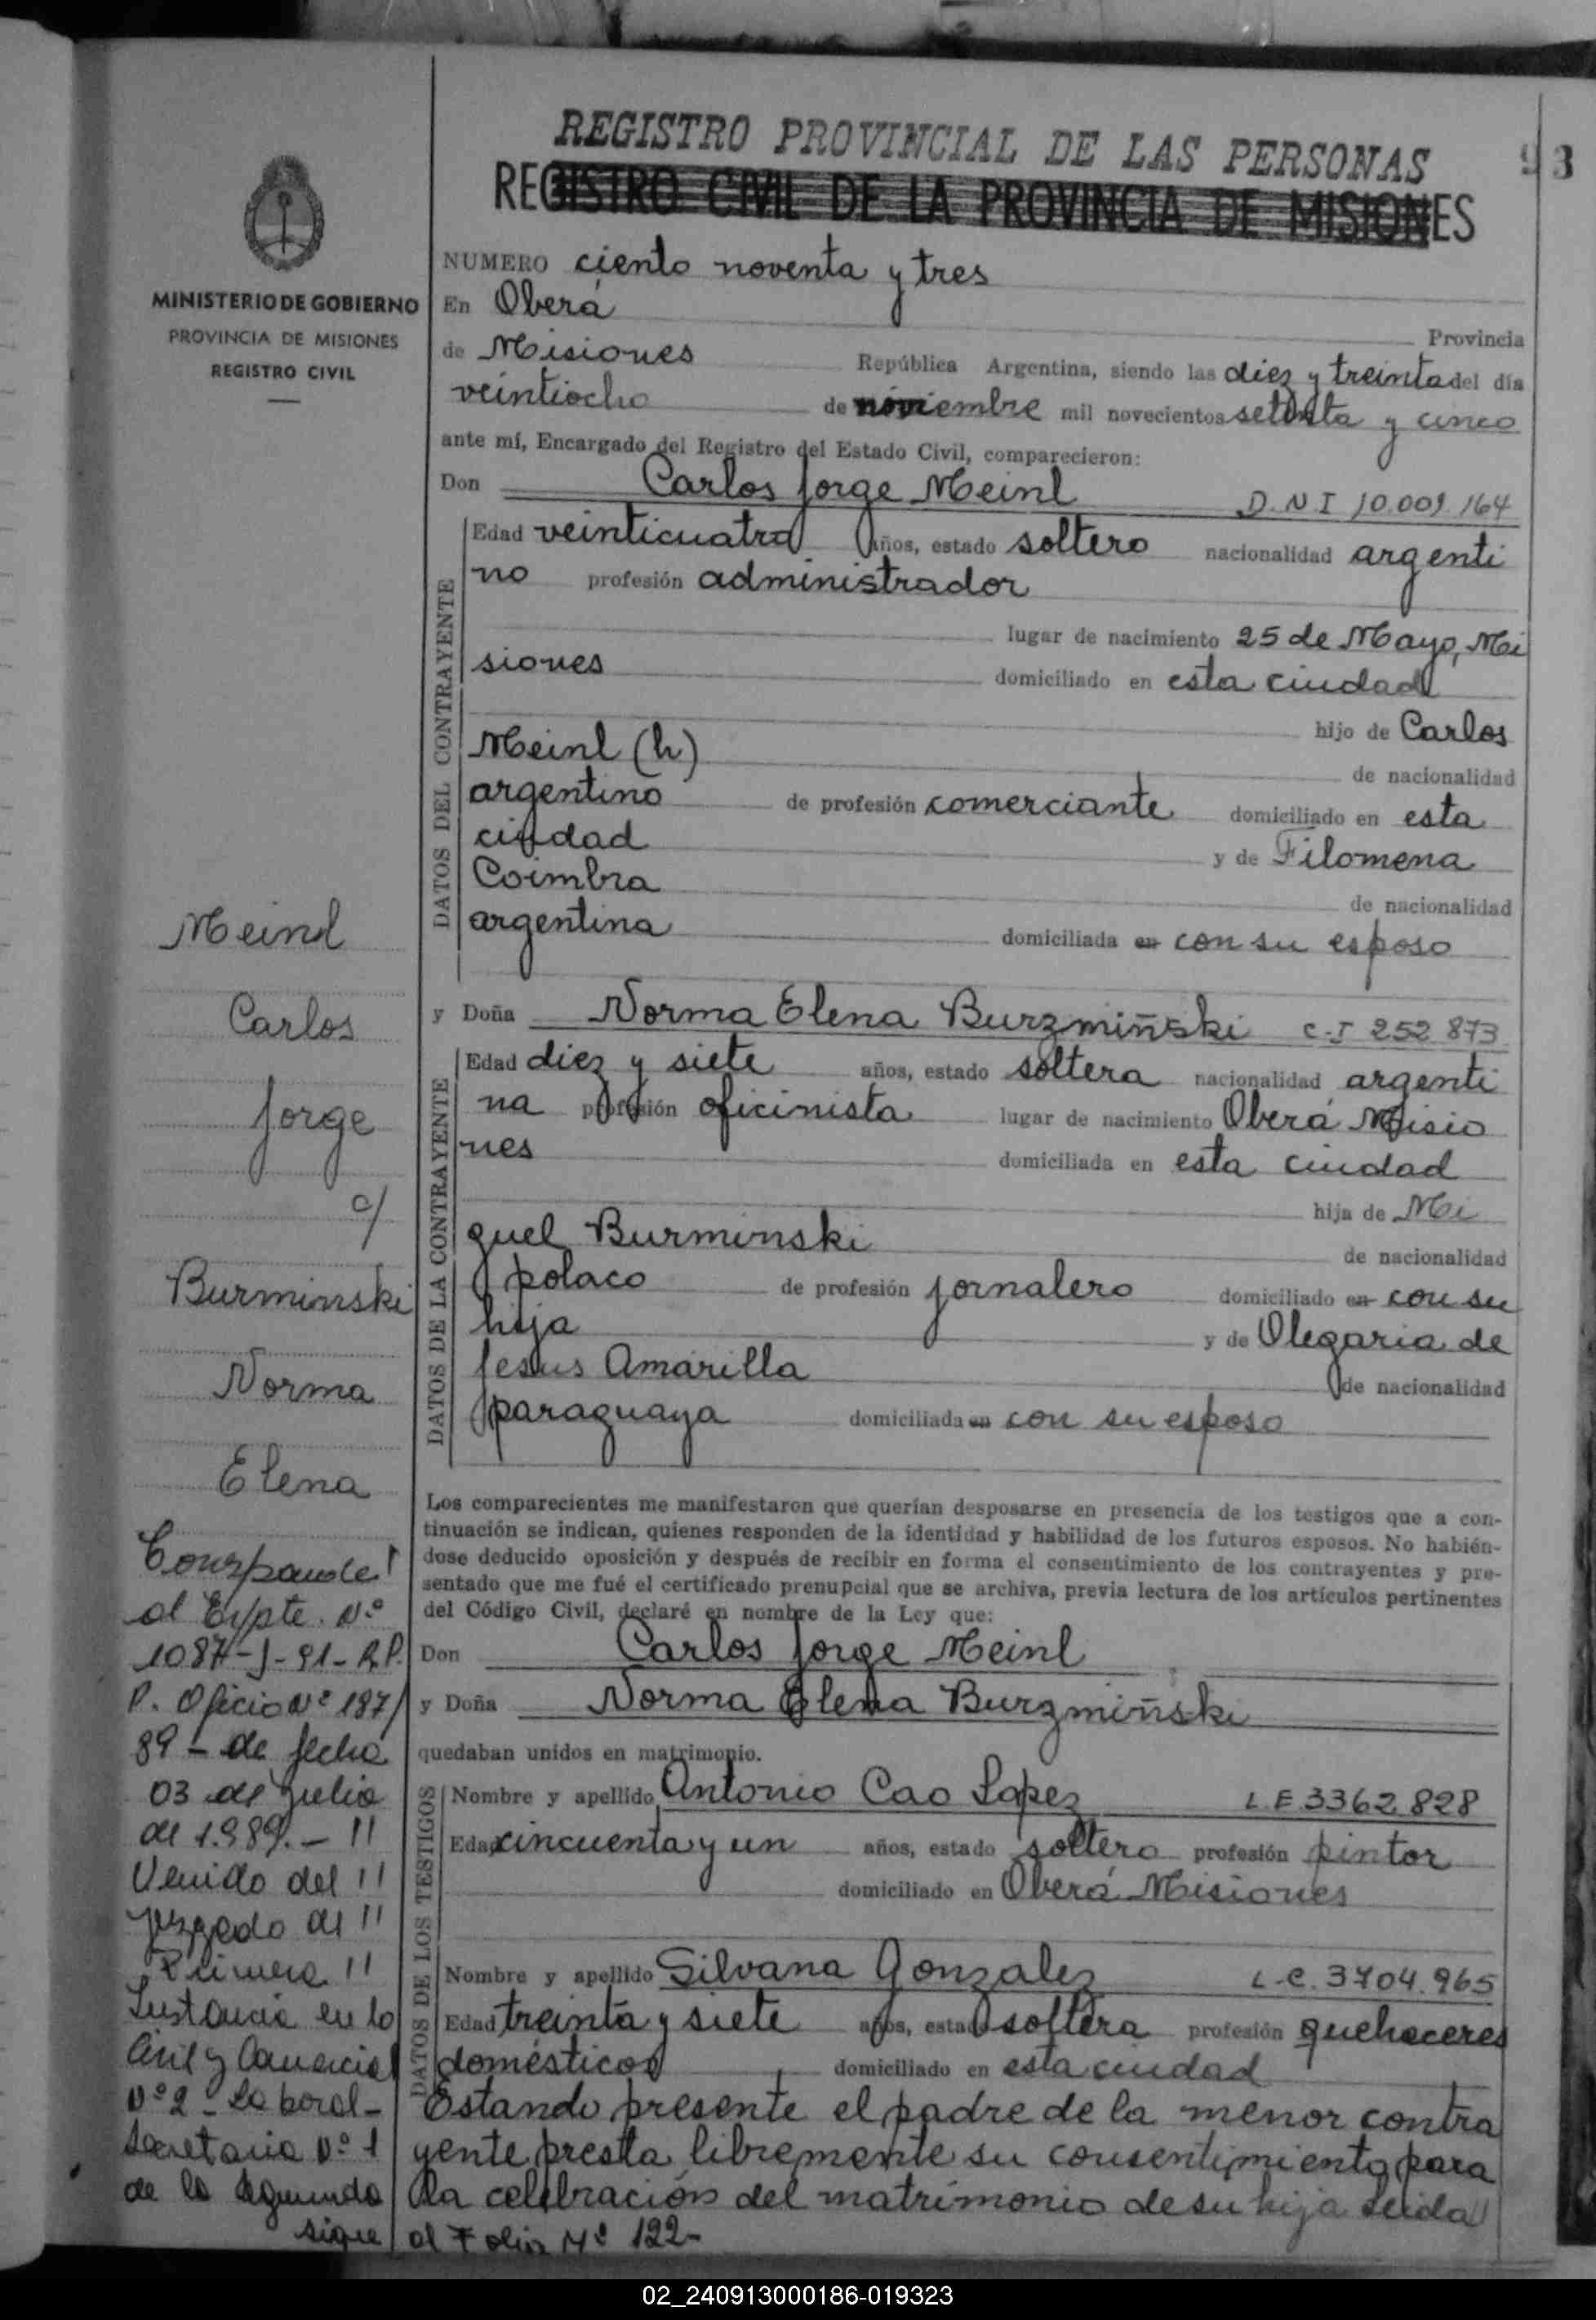 REGISTRO PROVINCIAL DE LAS PERSONAS
93
REGISTRO CIVIL DE LA PROVINCIA DE MISIONES
MINISTERIO DE GOBIERNO
PROVINCIA DE MISIONES
REGISTRO CIVIL
NUMERO ciento noventa y tres
En Oberá Provincia
de Misiones República Argentina, siendo las diez y treinta del día
veintiocho de noviembre mil novecientos setenta y cinco
ante mí, Encargado del Registro del Estado Civil, comparecieron:
Don Carlos Jorge Meinl D.N.I 10.009.164
DATOS DEL CONTRAYENTE
Edad veinticuatro años, estado soltero nacionalidad argenti
no profesión administrador
lugar de nacimiento 25 de Mayo, Mi
siones domiciliado en esta ciudad
hijo de Carlos
Meinl (h) de nacionalidad
argentino de profesión comerciante domiciliado en esta
ciudad y de Filomena
Coimbra de nacionalidad
argentina domiciliada en con su esposo
y Doña Norma Elena Burzmiñski C.I 252.873
DATOS DE LA CONTRAYENTE
Edad diez y siete años, estado soltera nacionalidad argenti
na profesión oficinista lugar de nacimiento Oberá Misio
nes domiciliada en esta ciudad
hija de Mi
guel Burminski de nacionalidad
polaco de profesión jornalero domiciliado en con su
hija y de Olegaria de
Jesus Amarilla de nacionalidad
paraguaya domiciliada en con su esposo
Los comparecientes me manifestaron que querían desposarse en presencia de los testigos que a con-
tinuación se indican, quienes responden de la identidad y habilidad de los futuros esposos. No habién-
dose deducido oposición y después de recibir en forma el consentimiento de los contrayentes y pre-
sentado que me fué el certificado prenupcial que se archiva, previa lectura de los artículos pertinentes
del Código Civil, declaré en nombre de la Ley que:
Don Carlos Jorge Meinl
y Doña Norma Elena Burzmiñski
quedaban unidos en matrimonio.
DATOS DE LOS TESTIGOS
Nombre y apellido Antonio Cao Lopez L.E 3362.828
Edad cincuenta y un años, estado soltero profesión pintor
domiciliado en Oberá Misiones
Nombre y apellido Silvana Gonzalez L.C. 3704.965
Edad treinta y siete años, estado soltera profesión quehaceres
domésticos domiciliado en esta ciudad
Estando presente el padre de la menor contra
yente presta libremente su consentimiento para
la celebración del matrimonio de su hija Leida
Meinl
Carlos
Jorge
c/
Burminski
Norma
Elena
al Expte. Nº
1087-J-91- R.P.
P. Oficio Nº 187/
89 - de fecha
03 de Julio
de 1.989.- "
Venido del "
Juzgado de "
Primera "
Instancia en lo
Civil y Comercial
Nº 2 - Laboral -
Secretaria Nº 1
de la Segunda
sigue al Folio Nº 122-
02_240913000186-019323